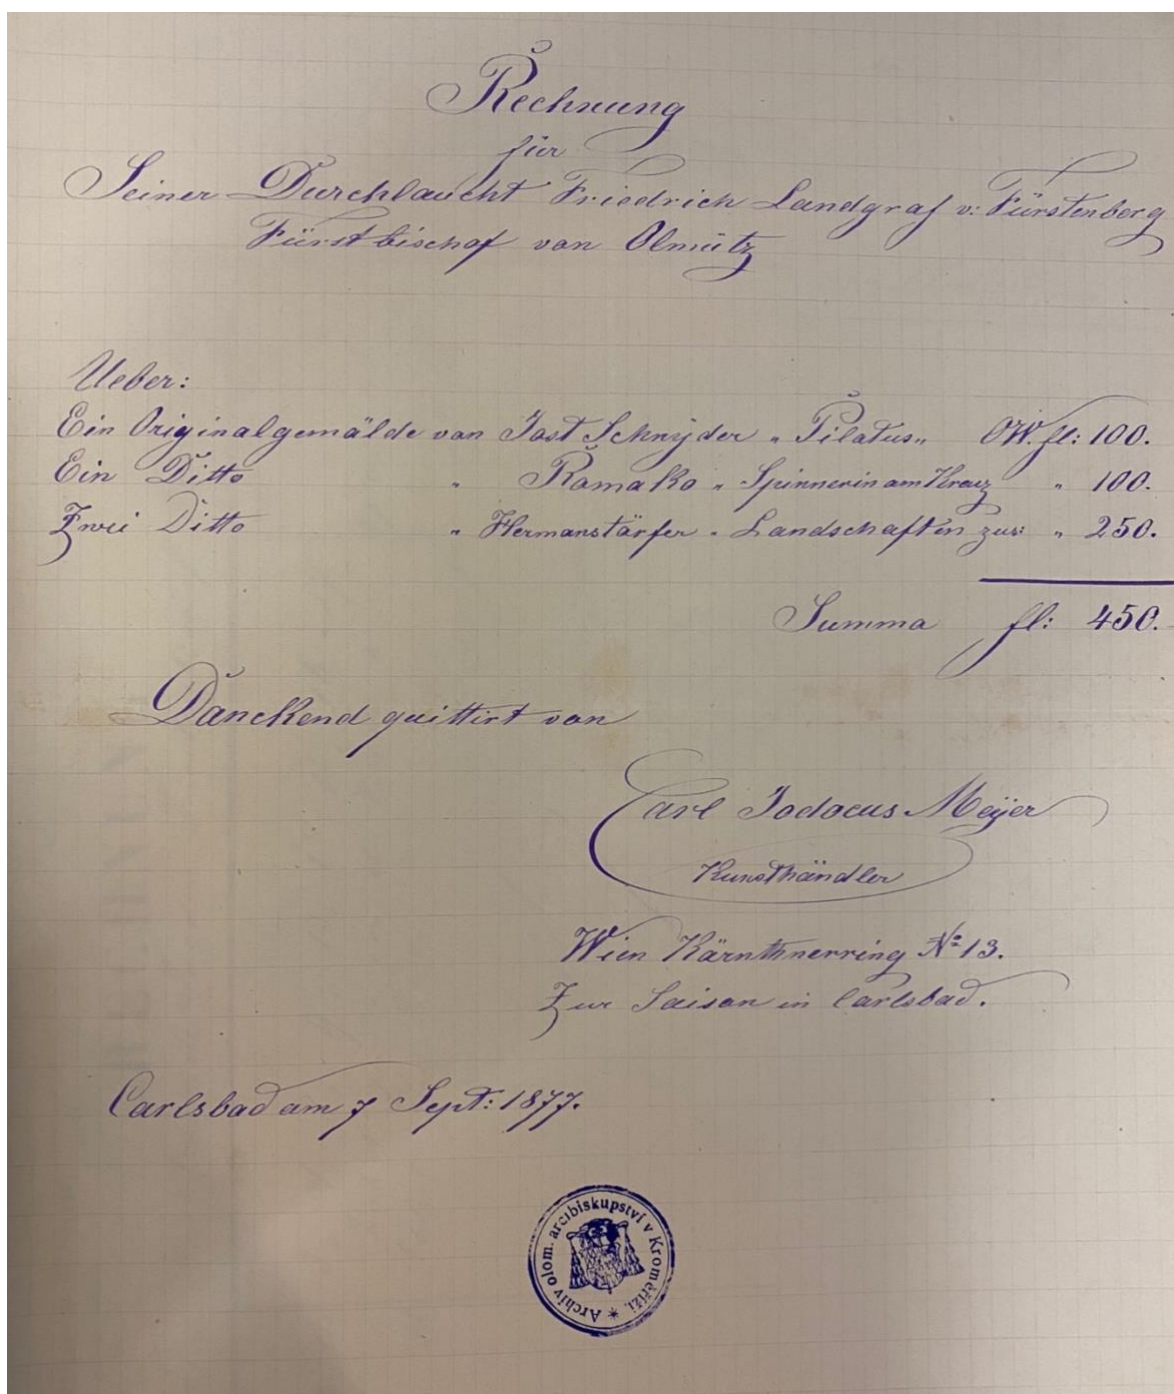 Rechnung
für
Seiner Durchlaucht Friedrich Landgraf v: Fürstenberg
Fürstbischof von Olmütz
Ueber:
Ein Originalgemälde von Jost Schnyder „ Pilatus„ ÖW. fl: 100.
Ein Ditto " Romako „ Spinnerin am Kreuz " 100.
Zwei Ditto " Hermanstärfer „ Landschaften zus: " 250.
Summa fl: 450.
Danckend quittirt von
Carl Jodocus Meijer
Kunsthändler
Wien Kärnthnerring No 13.
Zur Saison in Carlsbad.
Carlsbad am 7 Sept: 1877.
* Archiv olom. arcibiskupství v Kroměříži.